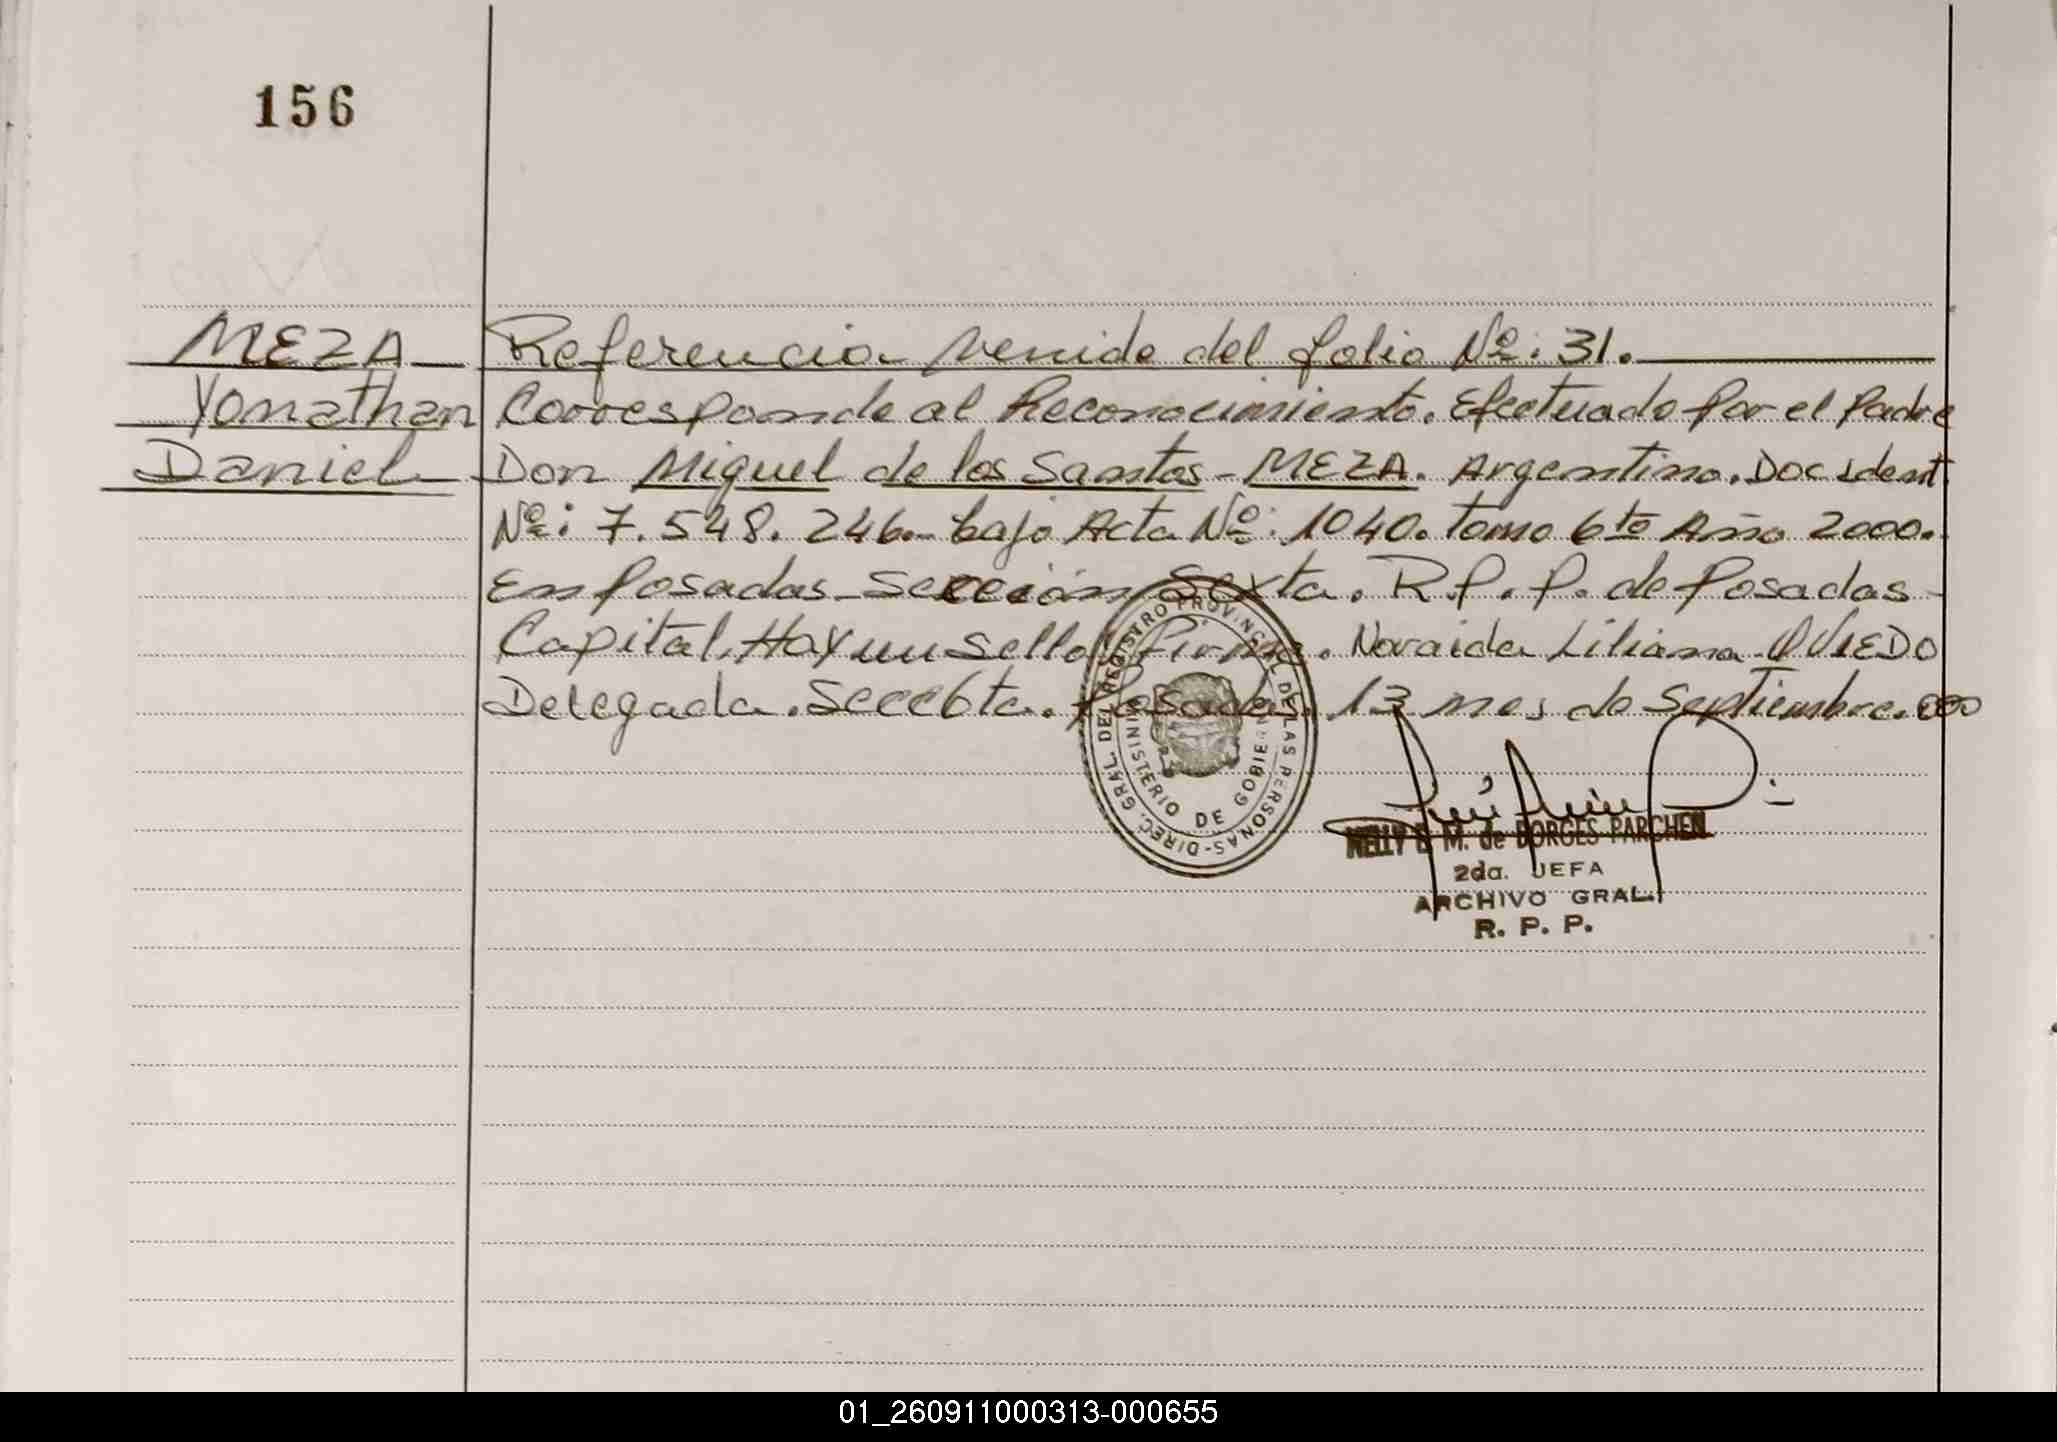 156
MEZA
Yonathan
Daniel
Referencia venida del folio Nº: 31.
Corresponde al Reconocimiento. Efectuado por el Padre
Don Miguel de los Santos - MEZA. Argentino. Doc ident
Nº: 7.548.246.- bajo Acta Nº: 1040. tomo 6to Año 2000.
En Posadas - Sección Sexta. R. P. P. de Posadas -
Capital. Hay un sello y Firma. Noraida Liliana OVIEDO
Delegada. Secc 6ta. Posadas. 13 mes de Septiembre. 000
DIREC. GRAL. DEL REGISTRO PROVINCIAL DE LAS PERSONAS
MINISTERIO DE GOBIERNO
NELLY E. M. de BORGES PARCHEN
2da. JEFA
ARCHIVO GRAL.
R. P. P.
01_260911000313-000655